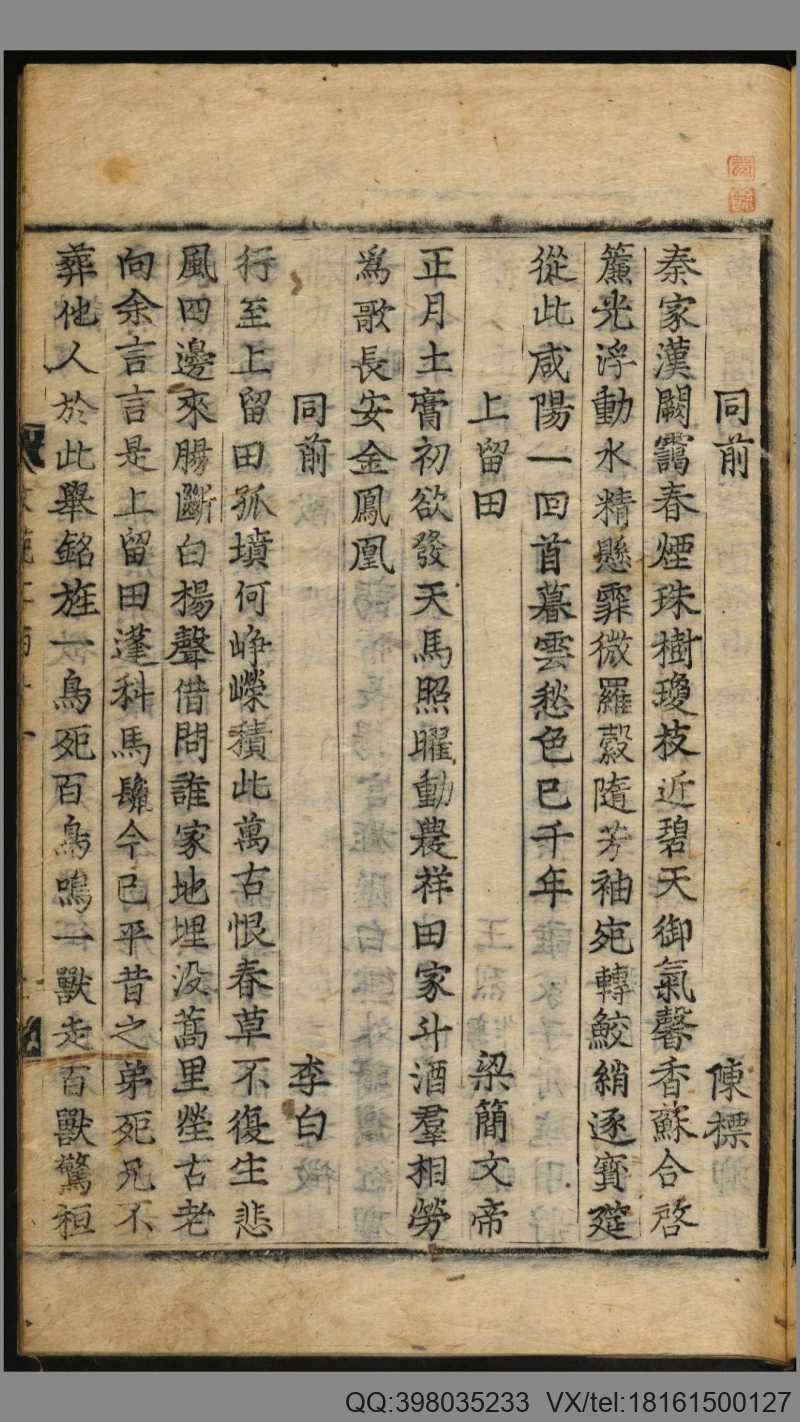 同前 陳標
秦家漢闕靄春煙珠樹瓊枝近碧天御氣馨香蘇合啓
簾光浮動水精懸霏微羅縠隨芳袖宛轉鮫綃逐寳筵
從此咸陽一回首暮雲愁色已千年
上留田 梁簡文帝
正月土膏初欲發天馬照曜動農祥田家斗酒羣相勞
爲歌長安金鳳凰
同前 李白
行至上留田孤墳何峥嶸積此萬古恨春草不復生悲
風四邊來腸斷白楊聲借問誰家地埋没蒿里塋古老
向余言言是上留田蓬科馬鬛今已平昔之弟死兄不
葬他人於此舉銘旌一鳥死百鳥鳴一獸走百獸驚桓
QQ:398035233 VX/tel:18161500127